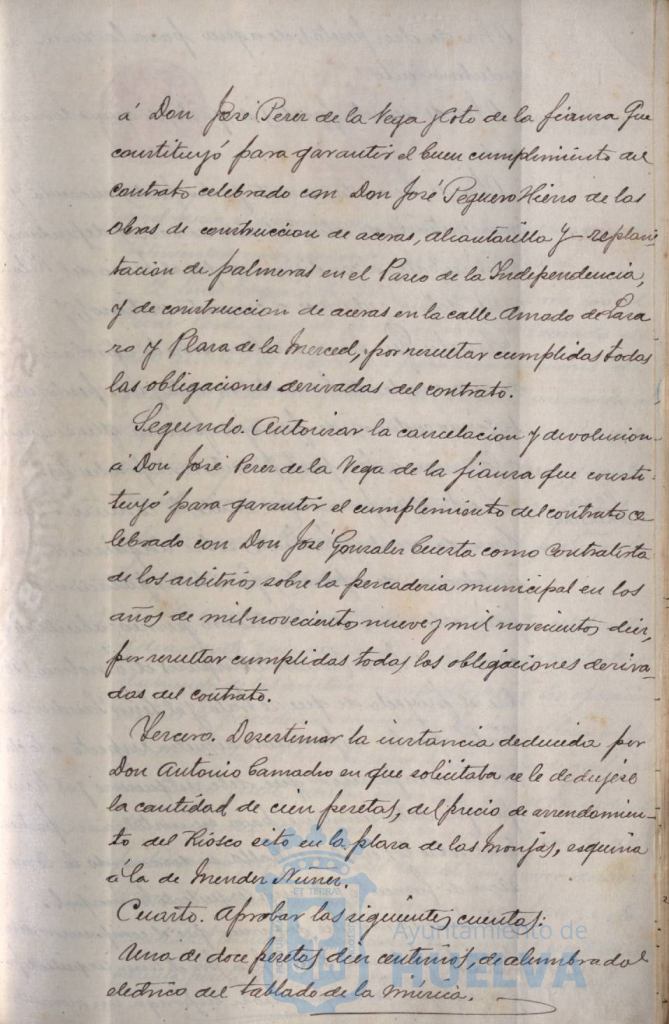 á Don José Perez de la Vega y Coto de la fianza que
constituyó para garantir el buen cumplimiento del
contrato celebrado con Don José Peguero Hierro de las
obras de construccion de aceras, alcantarilla y replan-
tacion de palmeras en el Paseo de la Independencia,
y de construccion de aceras en la calle Amado de Laza
ro y Plaza de la Merced, por resultar cumplidas todas
las obligaciones derivadas del contrato.
Segundo. Autorizar la cancelacion y devolucion
á Don José Perez de la Vega de la fianza que consti-
tuyó para garantir el cumplimiento del contrato ce
lebrado con Don José Gonzalez Cuesta como contratista
de los arbitrios sobre la pescaderia municipal en los
años de mil novecientos nueve y mil novecientos diez,
por resultar cumplidas todas las obligaciones deriva-
das del contrato.
Tercero. Desestimar la instancia deducida por
Don Antonio Camacho en que solicitaba se le dedujese
la cantidad de cien pesetas, del precio de arrendamien-
to del Kiosco sito en la plaza de las Monjas, esquina
á la de Mendez Nuñez.
Cuarto. Aprobar las siguientes cuentas:
Una de doce pesetas diez centimos, de alumbrado
electrico del tablado de la música.
Ayuntamiento de
HUELVA